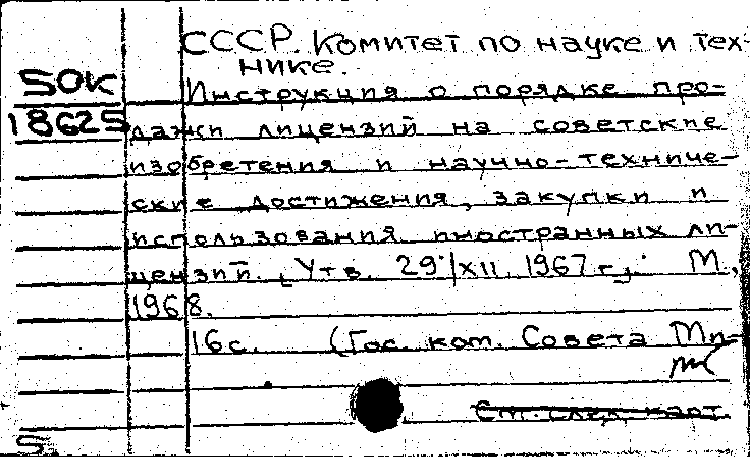 СССР. Комитет по науке и тех-
нике.
50К
Инструкция о порядке про-
18625
дажи лицензий на советские
изобретения и научно-техниче-
ские достижения, закупки и
использования иностранных ли-
цензий. [Утв. 29/XII. 1967 г.]. М.,
1968.
16с. (Гос. ком. Совета Ми-
См. след. карт.
5